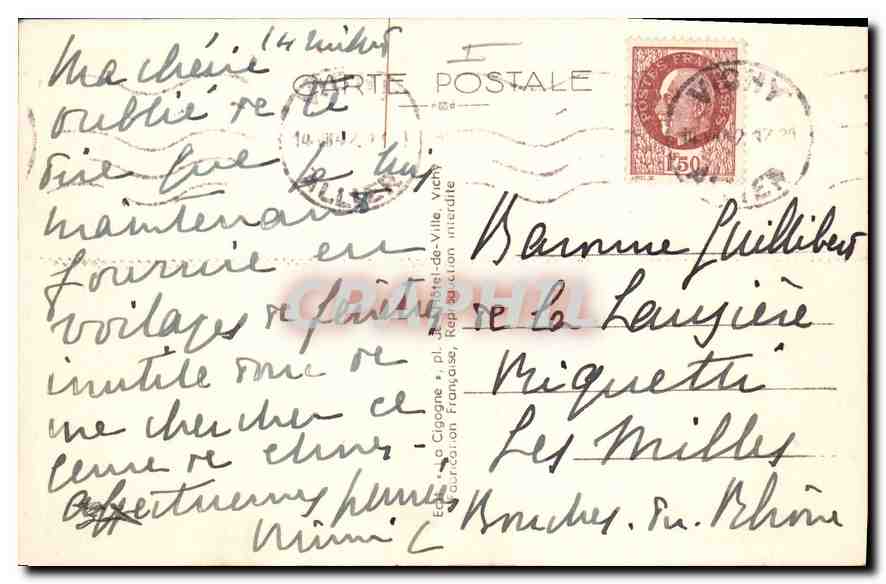 14 Juillet
Ma chérie
oublié de te
dire que je suis
maintenant
fournie en
voilages de fenêtres
inutile donc de
me chercher ce
genre de choses
affectueuses pensées
Mimi
CARTE POSTALE
I
POSTES FRANÇAISES
1F50
VICHY
ALLIER
ALLIER
Edit. "La Cigogne", pl. de l'Hôtel-de-Ville, Vichy
Fabrication Française, Reproduction interdite
CPAPHIL
Baronne Guillibert
de la Lauzière
Riquetti
Les Milles
Bouches-du-Rhône